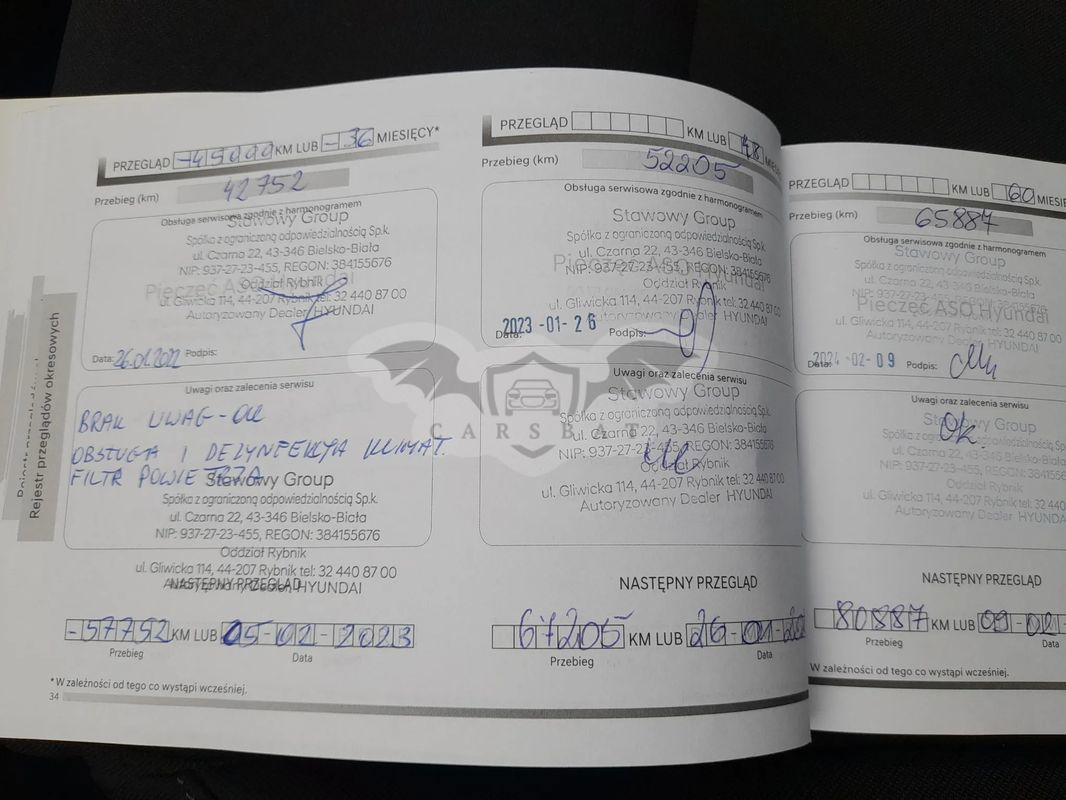 PRZEGLĄD -45000 KM LUB -36 MIESIĘCY*
Przebieg (km) 42752
Obsługa serwisowa zgodnie z harmonogramem
Stawowy Group
Spółka z ograniczoną odpowiedzialnością Sp.k.
ul. Czarna 22, 43-346 Bielsko-Biała
NIP: 937-27-23-455, REGON: 384155676
Pieczęć ASO Hyundai
Oddział Rybnik
ul. Gliwicka 114, 44-207 Rybnik tel: 32 440 87 00
Autoryzowany Dealer HYUNDAI
Data: 26.01.2022 Podpis:
Uwagi oraz zalecenia serwisu
BRAK UWAG - OK
OBSŁUGA I DEZYNFEKCJA KLIMAT.
FILTR POWIETRZA
Stawowy Group
Spółka z ograniczoną odpowiedzialnością Sp.k.
ul. Czarna 22, 43-346 Bielsko-Biała
NIP: 937-27-23-455, REGON: 384155676
Oddział Rybnik
ul. Gliwicka 114, 44-207 Rybnik tel: 32 440 87 00
Autoryzowany Dealer HYUNDAI
NASTĘPNY PRZEGLĄD
-57752 KM LUB 05-02-2023
Przebieg Data
*W zależności od tego co wystąpi wcześniej.
34
Rejestr przeglądów okresowych
PRZEGLĄD KM LUB 48
Przebieg (km) 52205
Obsługa serwisowa zgodnie z harmonogramem
Stawowy Group
Spółka z ograniczoną odpowiedzialnością Sp.k.
ul. Czarna 22, 43-346 Bielsko-Biała
Pieczęć ASO Hyundai
NIP: 937-27-23-455, REGON: 384155676
Oddział Rybnik
ul. Gliwicka 114, 44-207 Rybnik tel: 32 440 87 00
Autoryzowany Dealer HYUNDAI
Data: 2023-01-26 Podpis:
Uwagi oraz zalecenia serwisu
Stawowy Group
Spółka z ograniczoną odpowiedzialnością Sp.k.
ul. Czarna 22, 43-346 Bielsko-Biała
NIP: 937-27-23-455, REGON: 384155676
Oddział Rybnik
ul. Gliwicka 114, 44-207 Rybnik tel: 32 440 87 00
Autoryzowany Dealer HYUNDAI
NASTĘPNY PRZEGLĄD
67205 KM LUB 26-01-20
Przebieg Data
PRZEGLĄD KM LUB 60 MIESIĘ
Przebieg (km) 65887
Obsługa serwisowa zgodnie z harmonogramem
Stawowy Group
Spółka z ograniczoną odpowiedzialnością Sp.k.
ul. Czarna 22, 43-346 Bielsko-Biała
NIP: 937-27-23-455, REGON: 384155676
Pieczęć ASO Hyundai
Oddział Rybnik
ul. Gliwicka 114, 44-207 Rybnik tel: 32 440
Autoryzowany Dealer HYUNDAI
Data: 2024-02-09 Podpis:
Uwagi oraz zalecenia serwisu
Stawowy Group
Ok.
Spółka z ograniczoną odpowiedzialnością Sp.k.
ul. Czarna 22, 43-346 Bielsko-Biała
NIP: 937-27-23-455, REGON: 384155676
Oddział Rybnik
ul. Gliwicka 114, 44-207 Rybnik tel: 32 440
Autoryzowany Dealer HYUNDAI
NASTĘPNY PRZEGLĄD
80887 KM LUB 09-02-
Przebieg Data
*W zależności od tego co wystąpi wcześniej.
CARSBAT